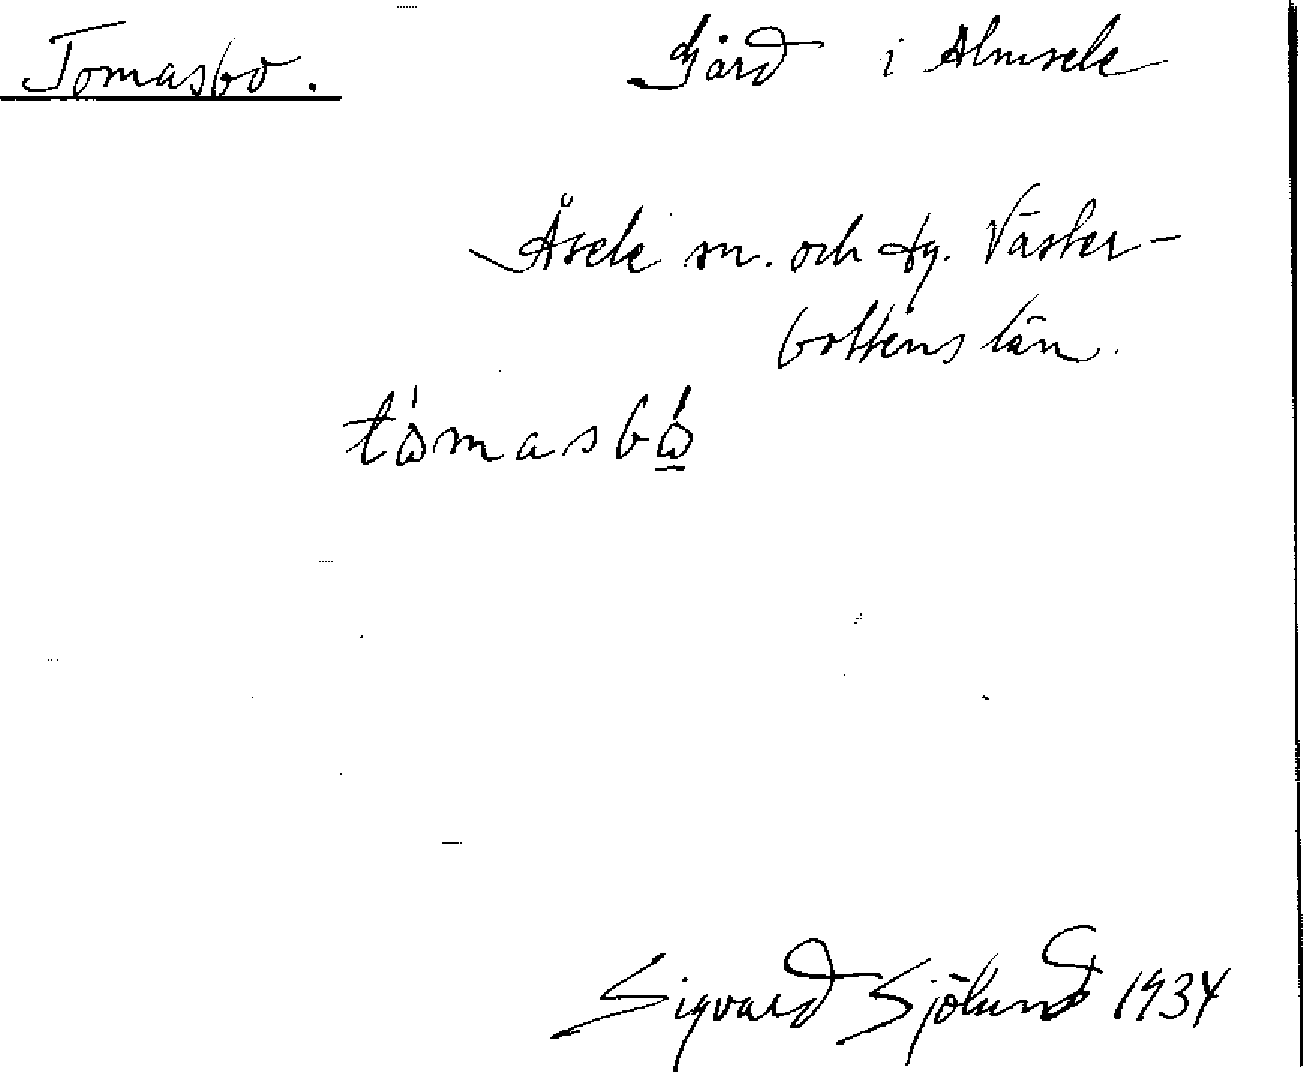 Tomasbo. Gård i Almsele
Åsele sn. och tg. Väster-
bottens län.
tòmasbò̲
Sigvard Sjölund 1934